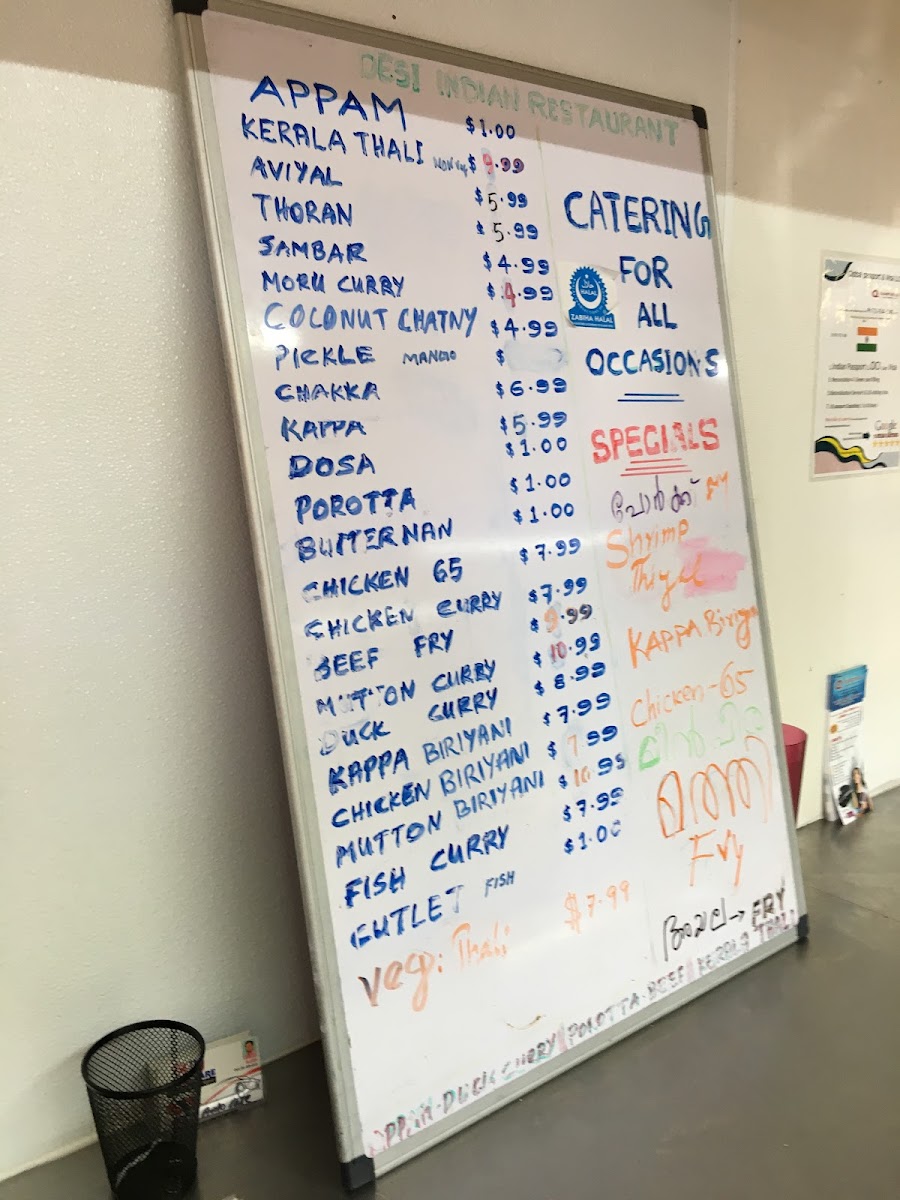 DESI INDIAN RESTAURANT
APPAM $1.00
KERALA THALI NON Veg $9.99
AVIYAL $5.99
THORAN $5.99
SAMBAR $4.99
MORU CURRY $4.99
COLONUT CHATNY $4.99
PICKLE MANGO $
CHAKKA $6.99
KAPPA $5.99
DOSA $1.00
POROTTA $1.00
BUTTER NAN $1.00
CHICKEN 65 $7.99
CHICKEN CURRY $7.99
BEEF FRY $9.99
MUTTON CURRY $10.99
DUCK CURRY $8.99
KAPPA BIRIYANI $7.99
CHICKEN BIRIYANI $7.99
MUTTON BIRIYANI $10.99
FISH CURRY $7.99
CUTLET FISH $1.00
veg: Thali $7.99
CATERING
FOR
ALL
OCCASIONS
HALAL
ZABIHA HALAL
SPECIALS
പോർക്ക് ഫ്രൈ
Shrimp
Thiyal
KAPPA Biriya
Chicken-65
മത്തി
Fry
അയല → FRY
APPAM-DUCK CURRY POROTTA-BEEF KERALA THALI
Google